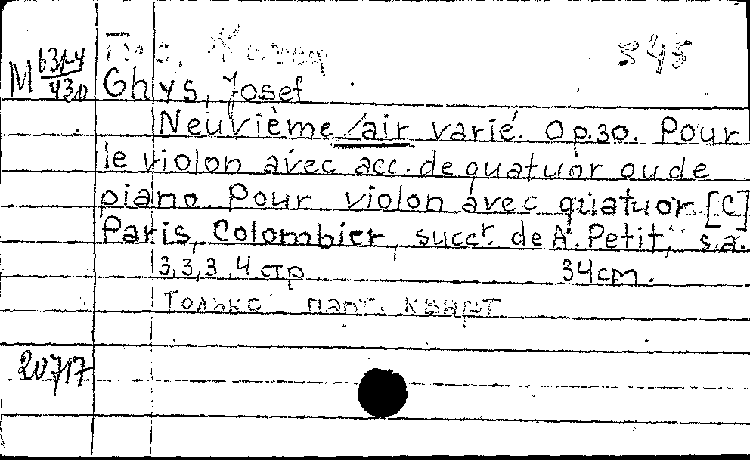 545
M 631-4
430
Ghys, Josef
Neuvième air varié. Op.30. Pour
le violon avec acc. de quatuor ou de
piano. Pour violon avec quatuor. [C]
Paris, Colombier, succr de A. Petit, s.a.
3,3,3,4 стр 34 cm.
Только парт. кварт
20717